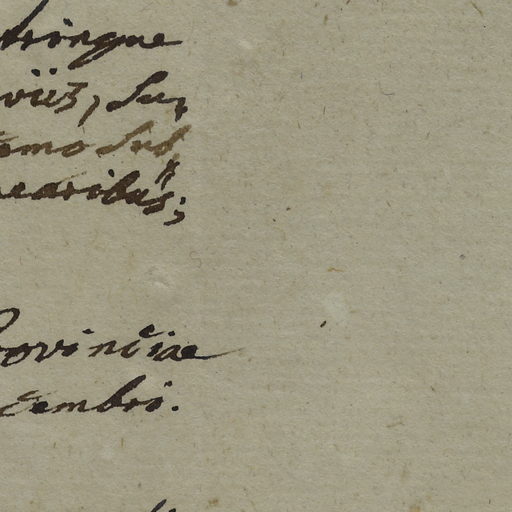 tringue
viis, Su-
emo Sub
earibus;
rovinciae
cembri.